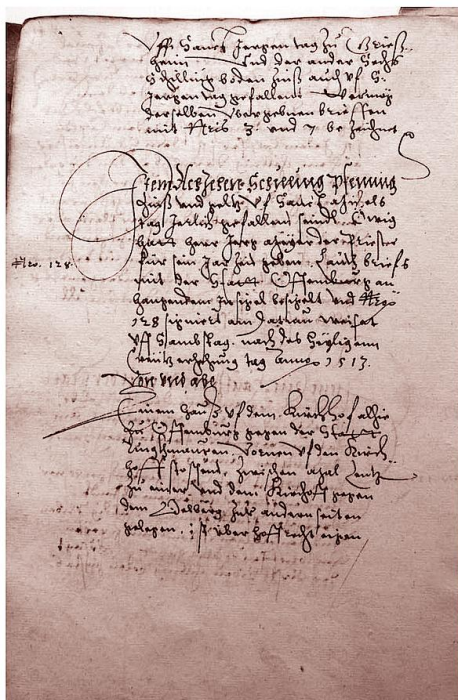 Vff Sanct Jergen tag zu Grieß
heim Und der ander Sechs
Schilling boden Zinß auch vf S.
Jergen tag gefallent Vermög
derselben Vbergebnen brieffen
mit Nris 3 vnd 7 bezeichnet
Item Achzehen Schilling Pfenning
Zinß vnd geltz vf Sanct
tag Jarlich gefallen seind Ewig
hatt Herr Jerg der Priester
für sein Jarzeit geben, Lautt briefs
Nro. 128.
mit der Statt Offenburg an
hangendem Insigel besigelt vnd Nro
128 signiert am Datum weiset
vff Sambstag nach des Heyligenn
Creütz erhehung tag Anno 1513.
Von vnd abe
Einem Hauß vf dem Kirchhof alhie
zu Offenburg gegen der Statt
Ringkmauren, Vornen vf den Kirch
hoff stossent, zwischen
zu einer vnd dem Kirchoff gegen
dem Oelberg zur andern seiten
gelegen, ist über hoffrecht eigen